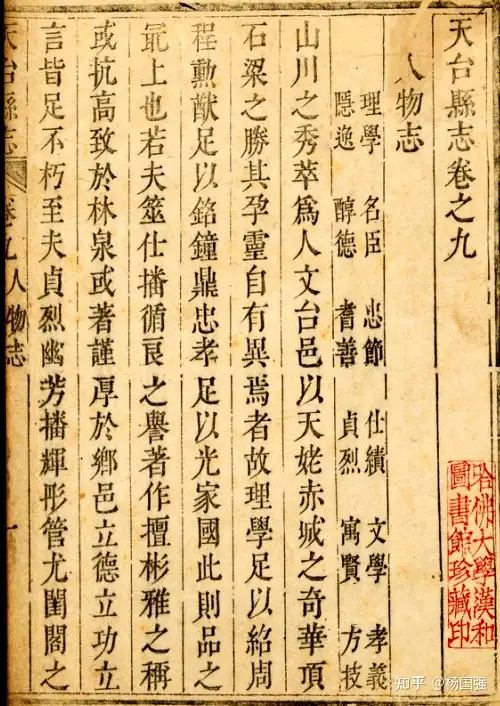 天台縣志卷之九
人物志
理學 名臣 忠節 仕績 文學 孝義
隱逸 醇德 耆善 貞烈 寓賢 方技
山川之秀萃爲人文台邑以天姥赤城之奇華項
石梁之勝其孕靈自有異焉者故理學足以紹周
程勲猷足以銘鐘鼎忠孝足以光家國此則品之
最上也若夫筮仕播循良之譽著作擅彬雅之稱
或抗高致於林泉或著謹厚於鄉邑立德立功立
言皆足不朽至夫貞烈幽芳播輝彤管尤閨閣之
天台縣志 卷九 人物志 一
哈佛大學漢和
圖書館珍藏印
知乎 @杨国强